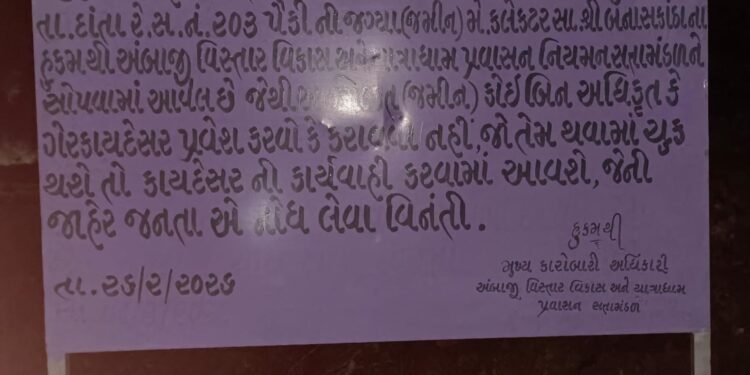 તા. દાંતા રે.સ.નં. ૨૦૩ પૈકી ની જગ્યા (જમીન) મે. કલેકટર સા. શ્રી બનાસકાંઠા ના
હુકમથી અંબાજી વિસ્તાર વિકાસ અને યાત્રાધામ પ્રવાસન નિયમન સતામંડળ ને
સોપવામાં આવેલ છે જેથી (જમીન) કોઇ બિન અધિકૃત કે
ગેરકાયદેસર પ્રવેશ કરવો કે કરાવવો નહીં, જો તેમ થવામાં ચુક
થશે તો કાયદેસર ની કાર્યવાહી કરવામાં આવશે, જેની
જાહેર જનતા એ નોંધ લેવા વિનંતી.
હુકમથી
મુખ્ય કારોબારી અધિકારી
અંબાજી વિસ્તાર વિકાસ અને યાત્રાધામ
પ્રવાસન સતામંડળ
તા. ૨૬/૨/૨૦૨૬